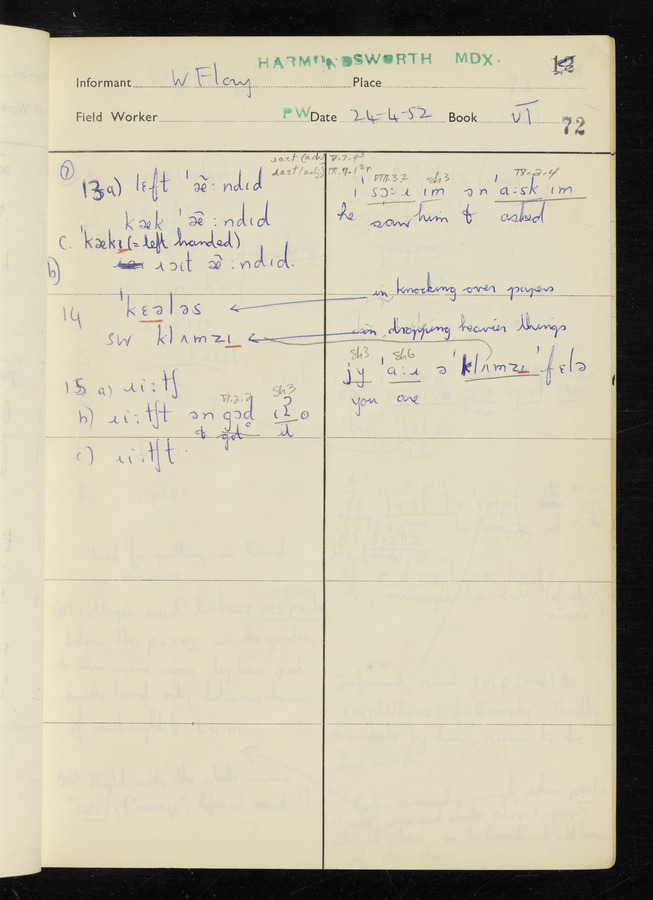 HARMONDSWORTH MDX.
12
Informant W Flay Place
Field Worker PW Date 24-4-52 Book VI 72
7
13 a) lɛft 'æ̃:ndɪd
kæk 'æ̃:ndɪd
c. 'kækɪ (= left handed)
b) ɹaɪt æ̃:ndɪd.
14 'kɛələs in knocking over papers
sw klʌmzɪ in dropping heavier things
15 a) ɹi:tʃ
VI.2.2 sh3
b) ɹi:tʃt ən gɒd ɪʔ
& got it
c) ɹi:tʃt.
VII.3.2 sh3 IX.2.4
i 'sɔ:ɹ ɪm ən 'a:sk ɪm
he saw him & asked
sh3 sh6
jy 'a:ɹ ə 'klʌmzɪ 'fɛlə
you are